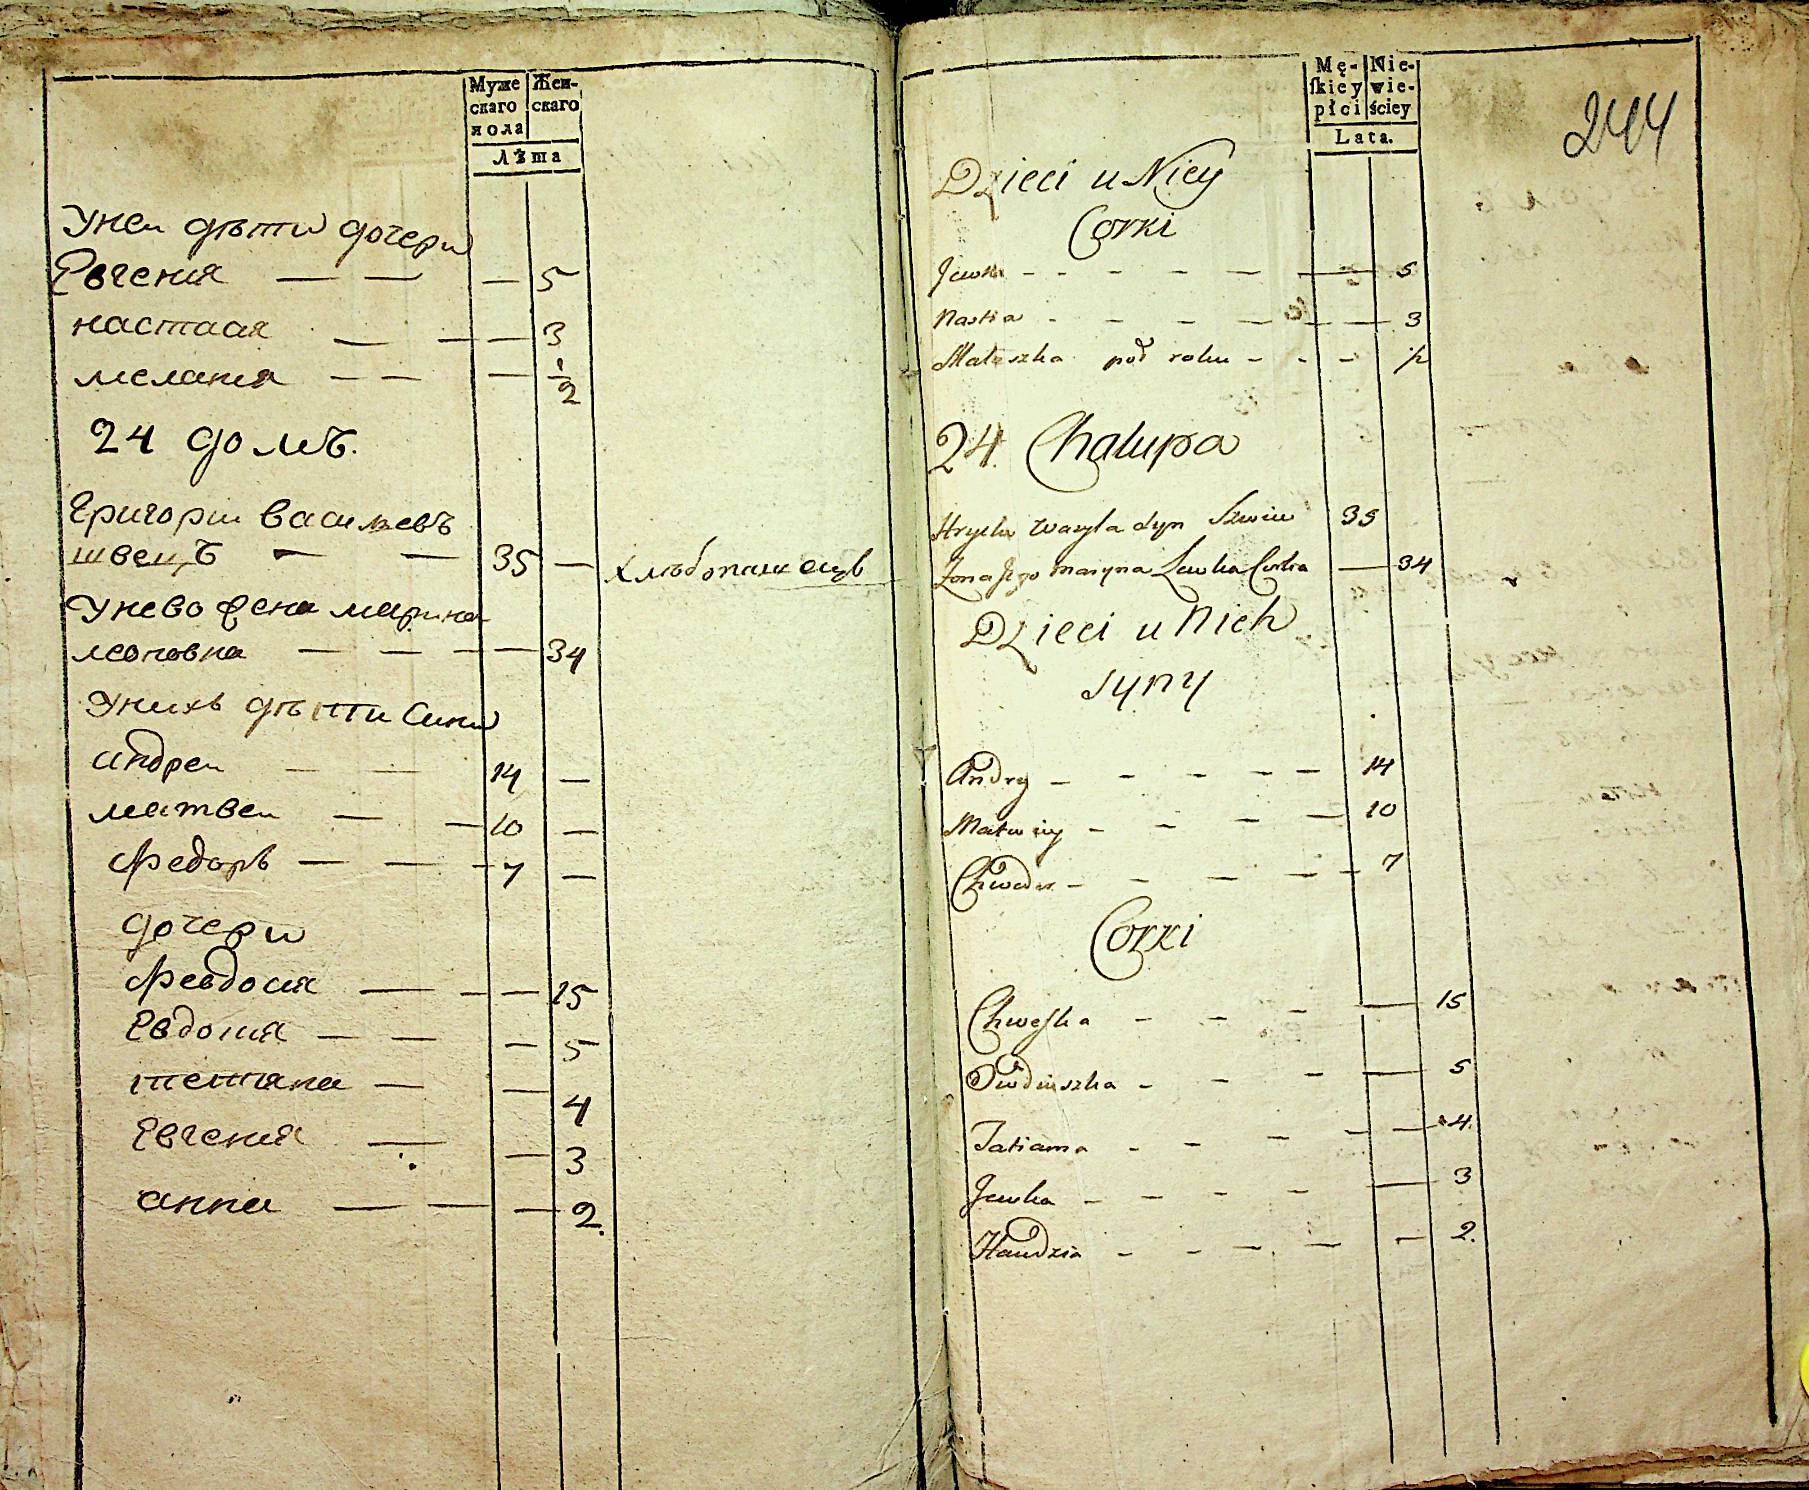 Муже
скаго
пола
Жен-
скаго
Лѣта
Унеи дѣти дочери
Евгения — — — 5
настася — — — 3
мелания — — — 1/2
24 домъ.
Григории васильевъ
швецъ — — 35 — хлѣбопашецъ
Унево жена марина
леоновна — — — — 34
Унихъ дѣти сини
андреи — — 14 —
матвеи — — 10 —
Федоръ — — — 7 —
дочери
Февдосия — — — 15
Евдокия — — — 5
тетяна — — 4
Евгения — — 3
анна — — — 2.
Mę-
skiey
płci
Nie-
wie-
ściey
Lata.
244
Dzieci u Niey
Corki
Jewka - - - - — — 5
Nastia - - - — — — 3
Malaszka pod roku - - - 1/2
24. Chalupa
Hrycko Wasyla Syn Szwiec 35
Żona Jego Maryna Lewka Corka — 34
Dzieci u Nich
Syny
Andry — - - - — 14
Matwiy - - - — 10
Chwedor - - - — - 7
Corki
Chweska - - - — 15
Owdiuszka - - - — 5
Tatianna - - - - — 4.
Jewka - - - - — 3
Handzia - - — — - 2.